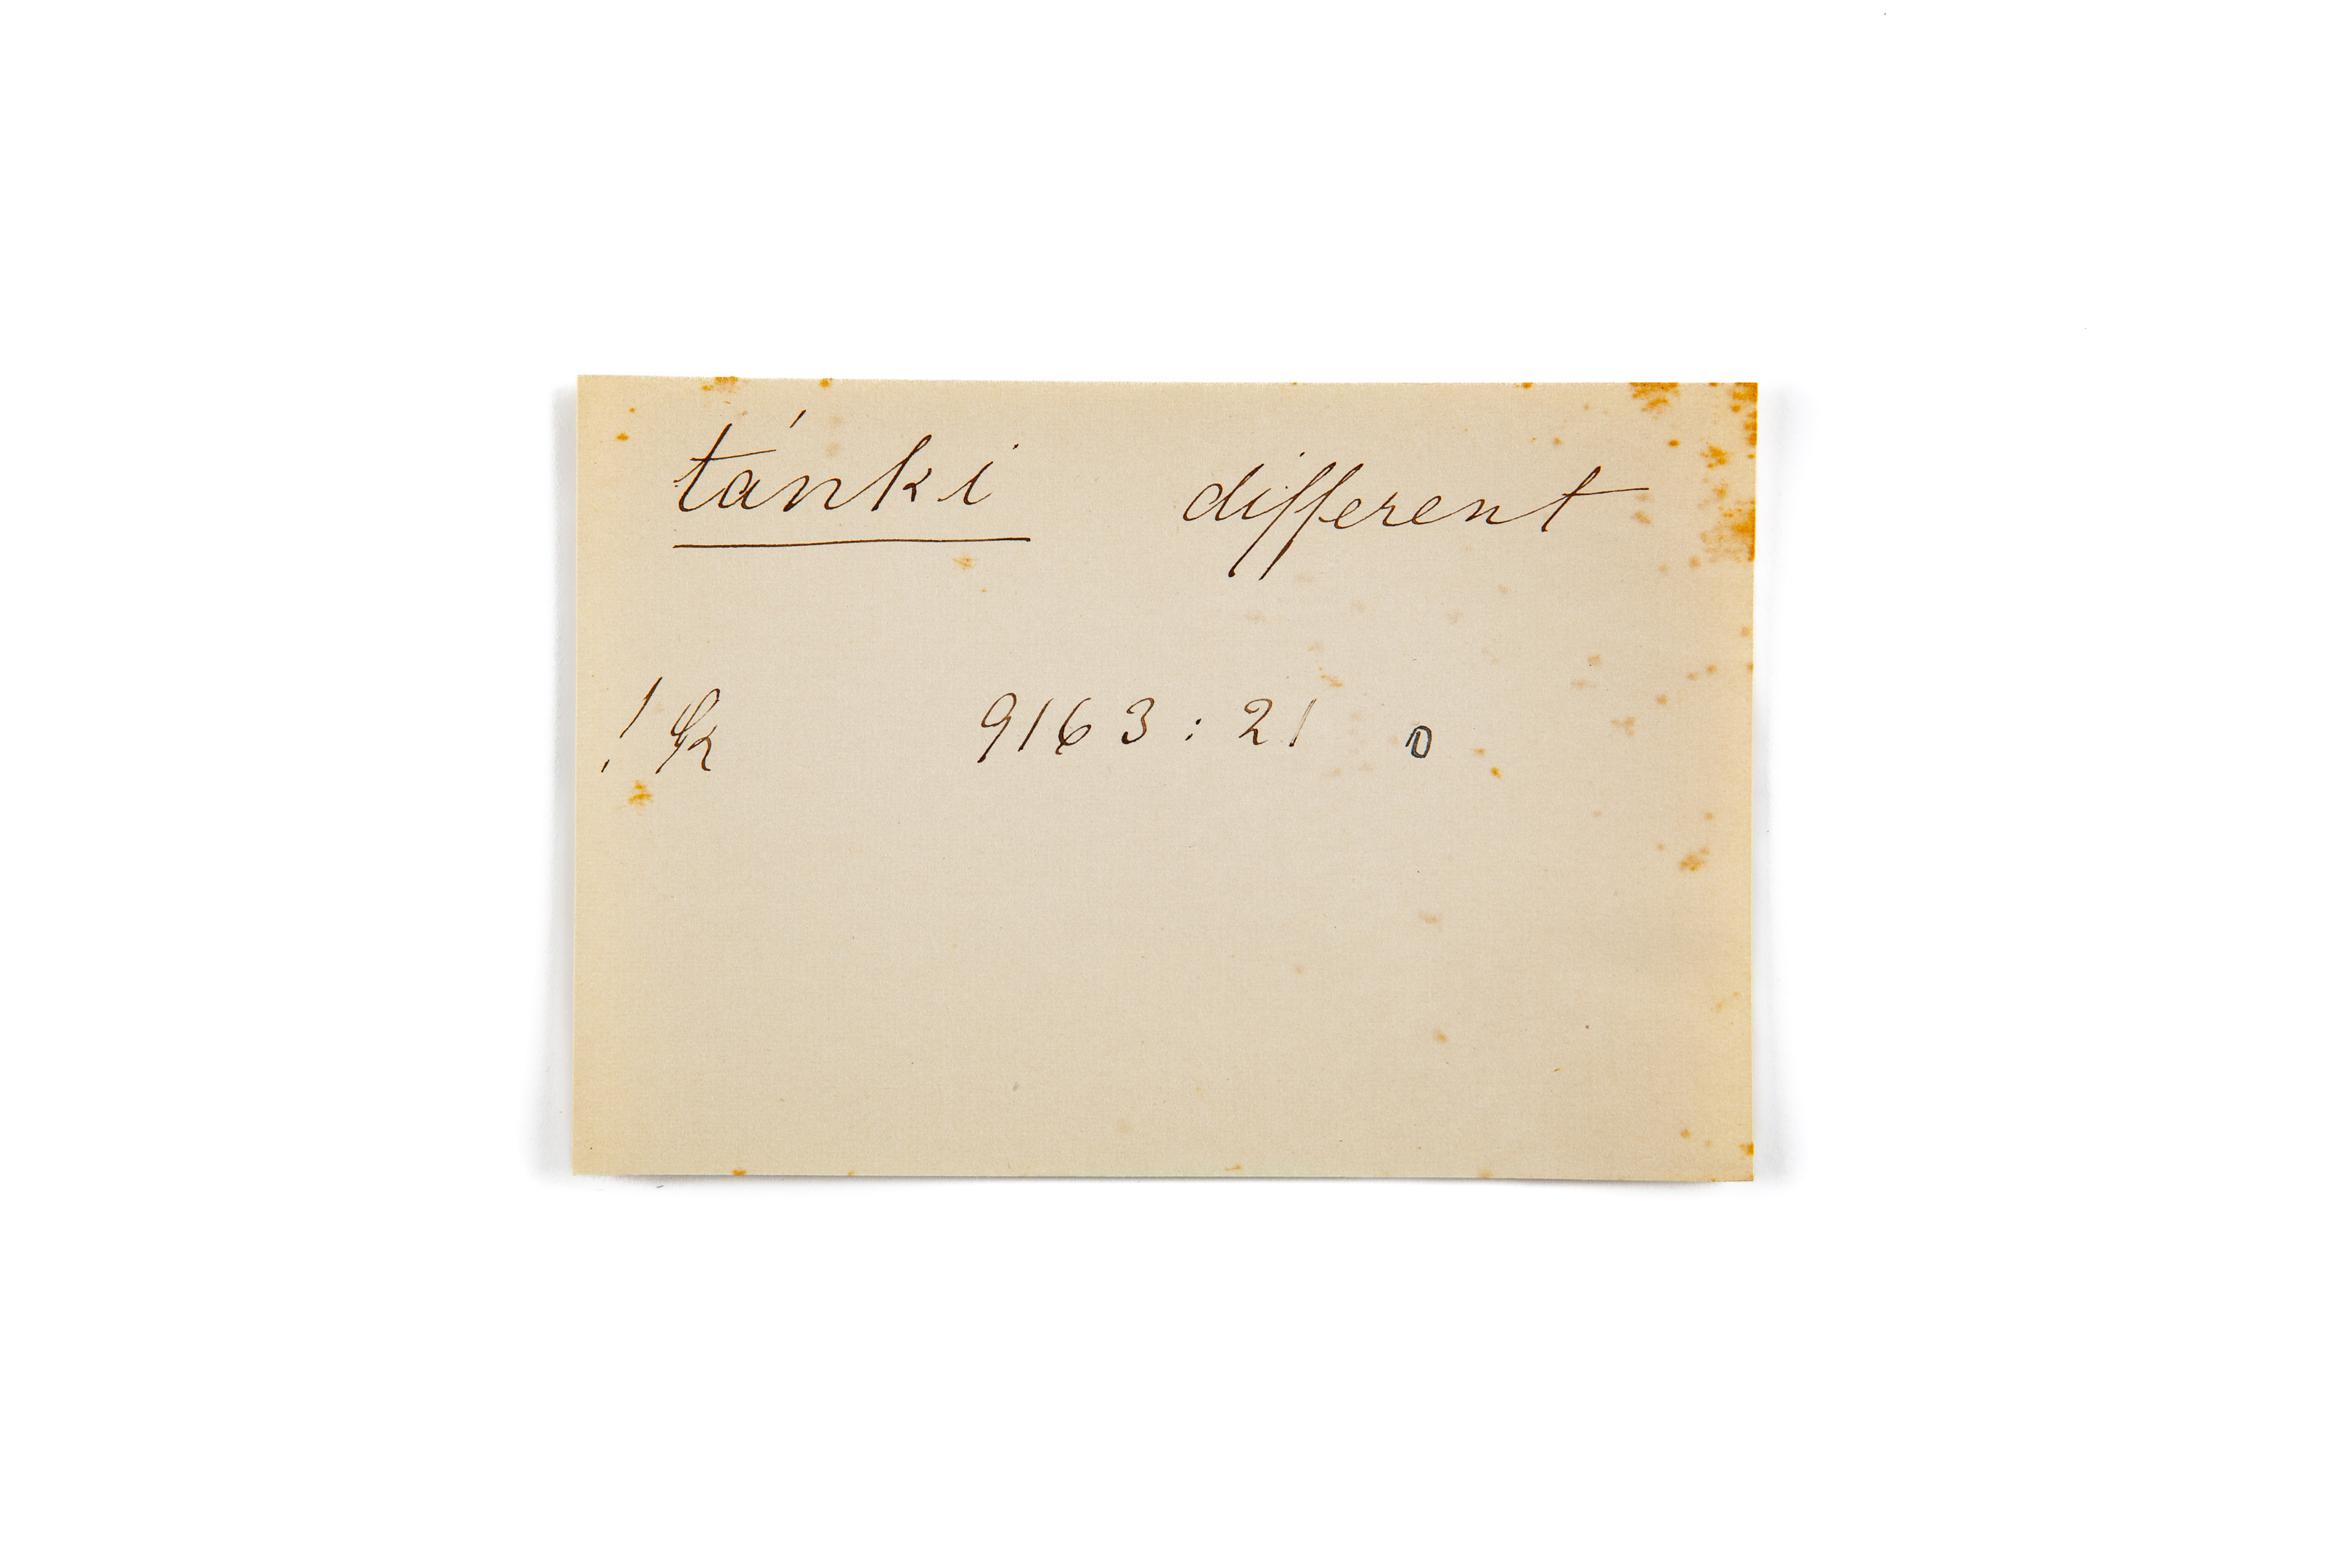 tánki different
! k 9163 : 21 0